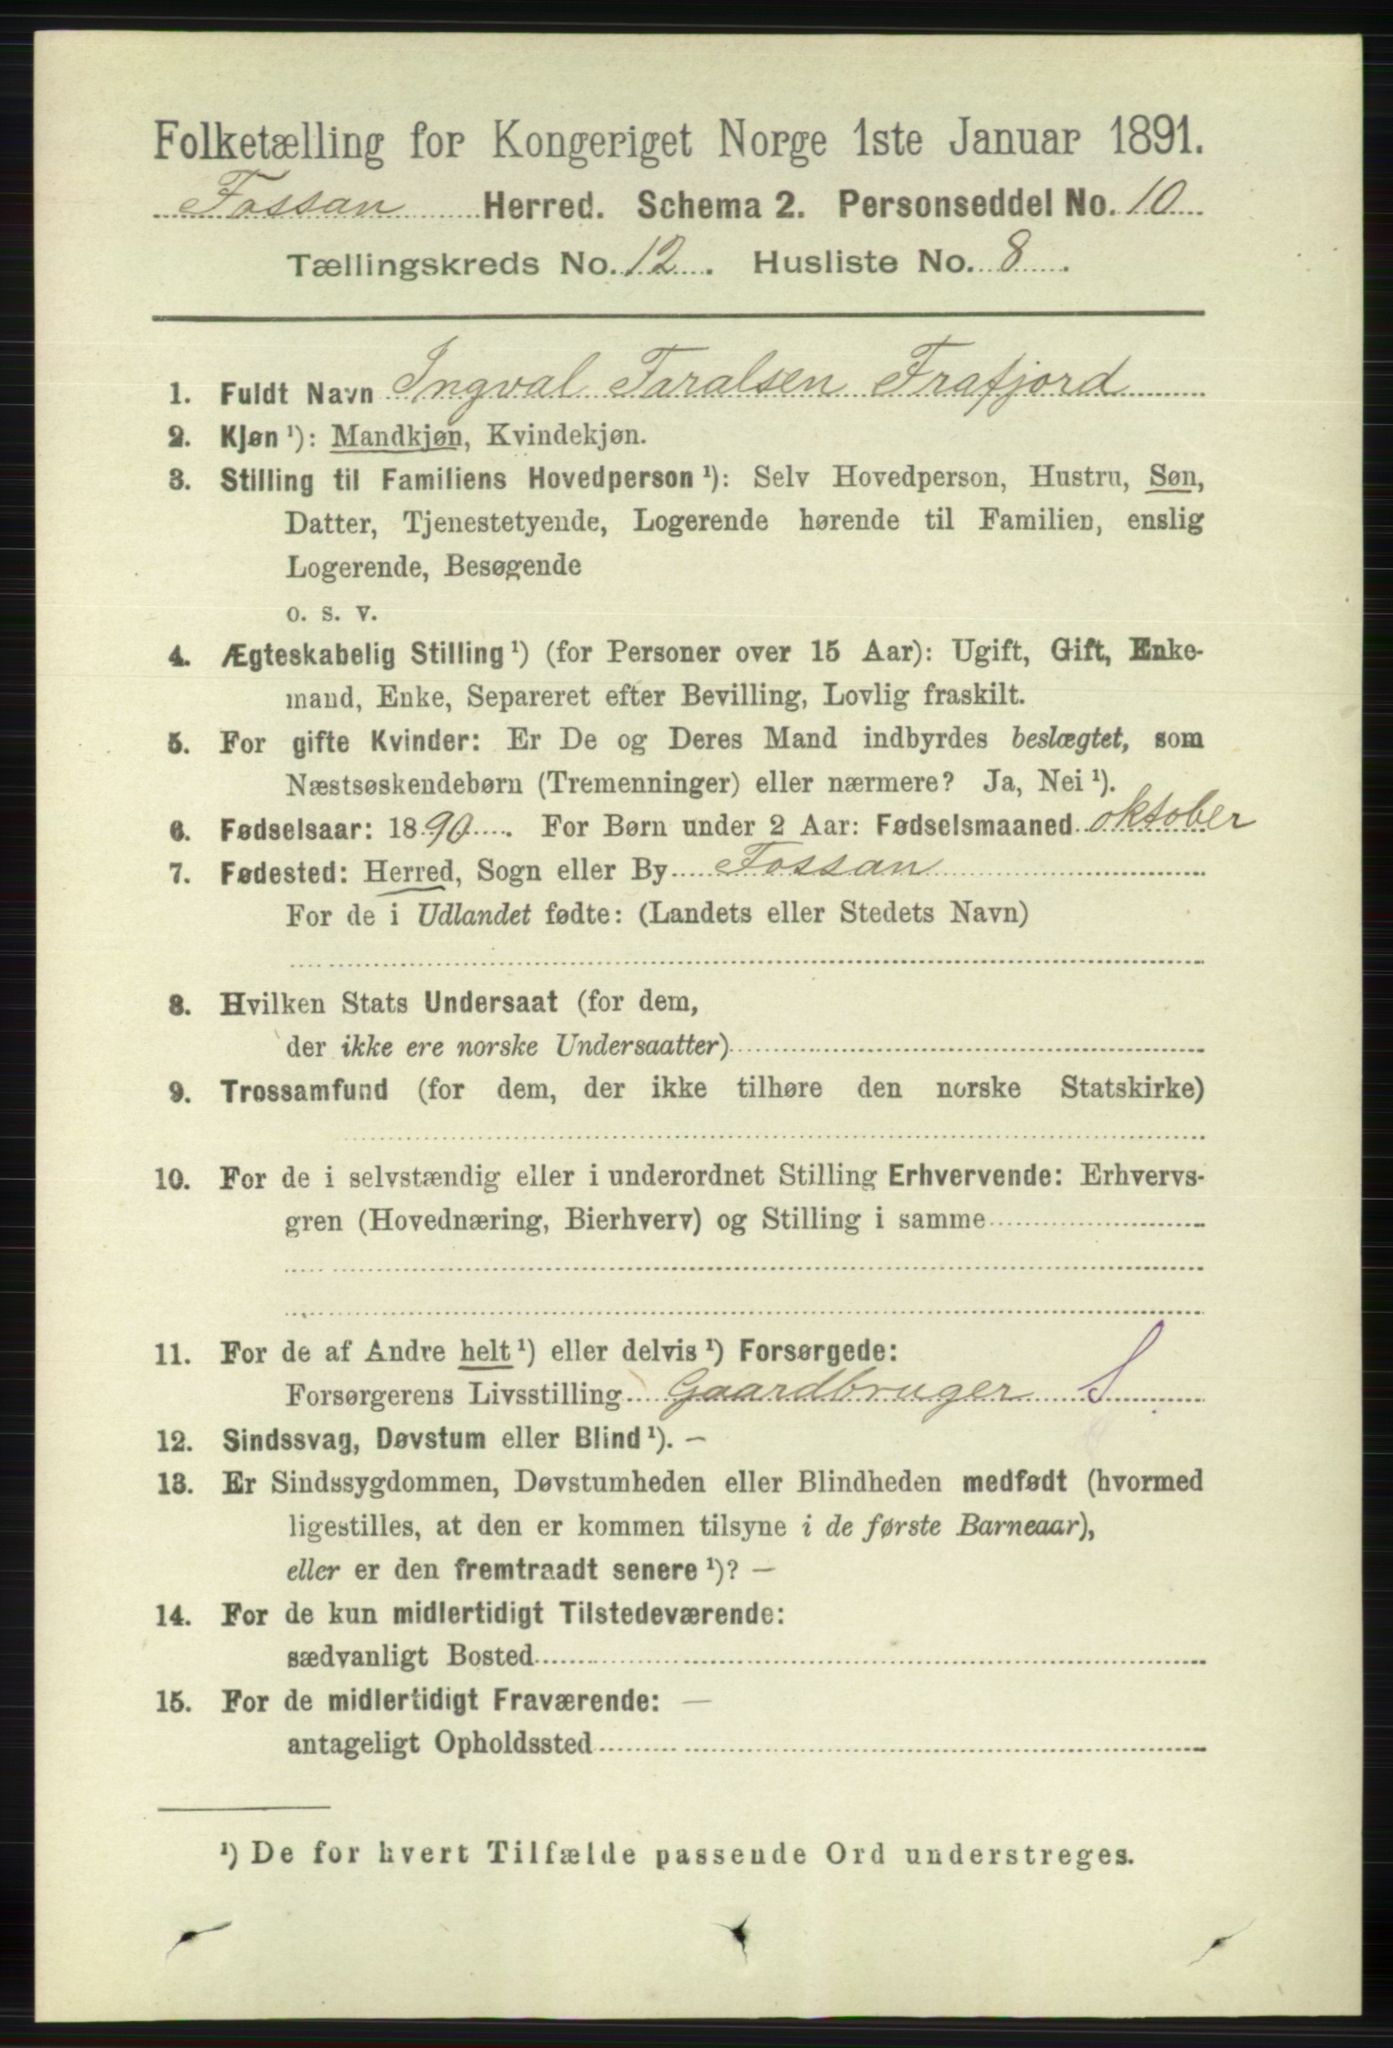 Folketælling for Kongeriget Norge 1ste Januar 1891.
Fossan Herred. Schema 2. Personseddel No. 10
Tællingskreds No. 12. Husliste No. 8.
1. Fuldt Navn Ingval Taralsen Frafjord
2. Kjøn ¹): Mandkjøn, Kvindekjøn.
3. Stilling til Familiens Hovedperson ¹): Selv Hovedperson, Hustru, Søn,
Datter, Tjenestetyende, Logerende hørende til Familien, enslig
Logerende, Besøgende
o. s. v.
4. Ægteskabelig Stilling ¹) (for Personer over 15 Aar): Ugift, Gift, Enke-
mand, Enke, Separeret efter Bevilling, Lovlig fraskilt.
5. For gifte Kvinder: Er De og Deres Mand indbyrdes beslægtet, som
Næstsøskendebørn (Tremenninger) eller nærmere? Ja, Nei ¹).
6. Fødselsaar: 1890. For Børn under 2 Aar: Fødselsmaaned oktober
7. Fødested: Herred, Sogn eller By Fossan
For de i Udlandet fødte: (Landets eller Stedets Navn)
8. Hvilken Stats Undersaat (for dem,
der ikke ere norske Undersaatter)
9. Trossamfund (for dem, der ikke tilhøre den norske Statskirke)
10. For de i selvstændig eller i underordnet Stilling Erhvervende: Erhvervs-
gren (Hovednæring, Bierhverv) og Stilling i samme
11. For de af Andre helt ¹) eller delvis ¹) Forsørgede:
Forsørgerens Livsstilling Gaardbruger S
12. Sindssvag, Døvstum eller Blind ¹). —
13. Er Sindssygdommen, Døvstumheden eller Blindheden medfødt (hvormed
ligestilles, at den er kommen tilsyne i de første Barneaar),
eller er den fremtraadt senere ¹)? —
14. For de kun midlertidigt Tilstedeværende:
sædvanligt Bosted
15. For de midlertidigt Fraværende: —
antageligt Opholdssted
¹) De for hvert Tilfælde passende Ord understreges.